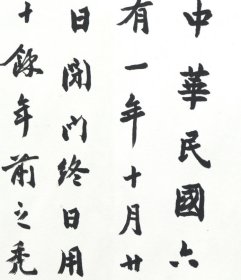 中華民國六
有一年十月廿
日閉門終日用
十餘年前之禿